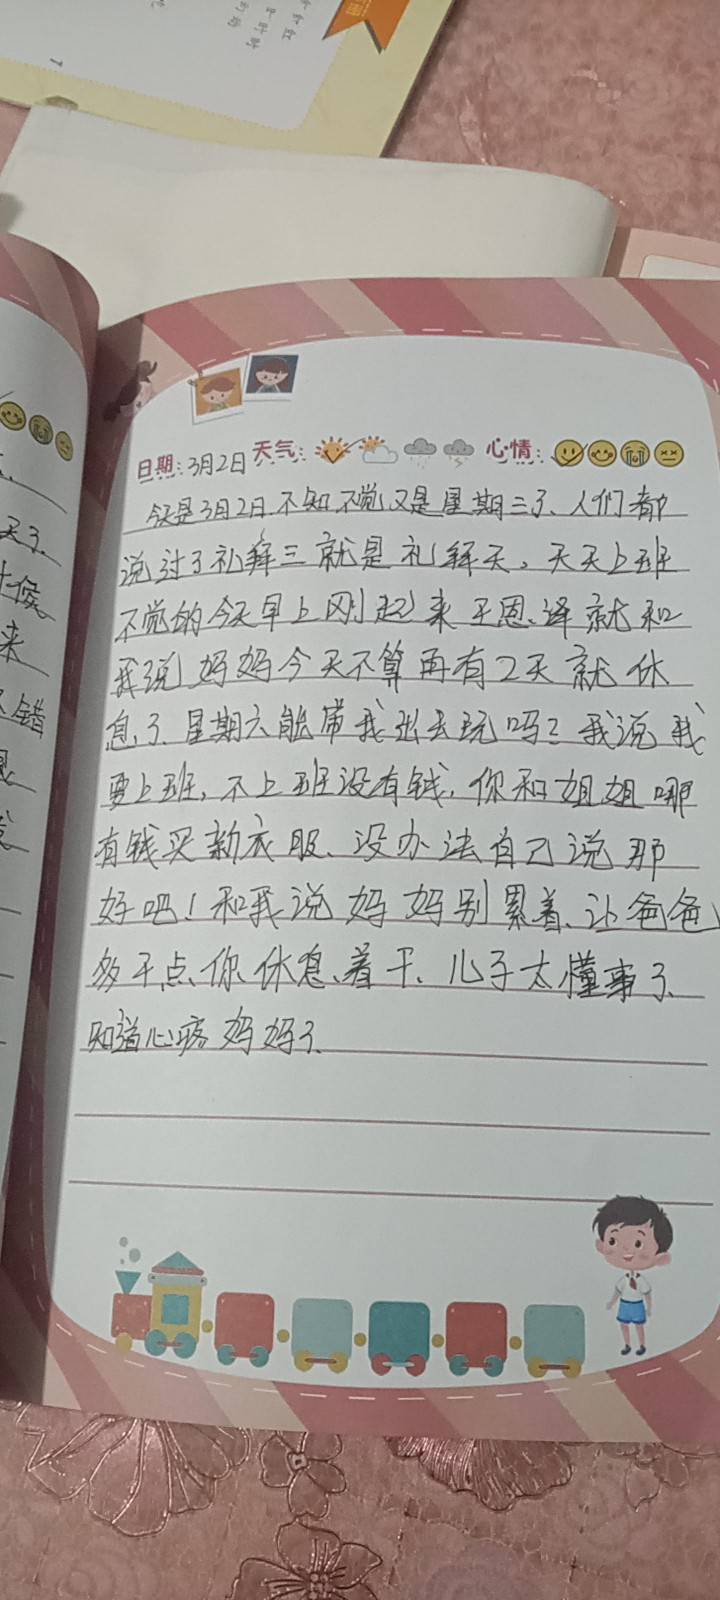 日期：3月2日 天气： 心情：
今天是3月2日、不知不觉又是星期三了、人们都
说过了礼拜三就是礼拜天，天天上班
不觉的今天早上刚起来王恩泽就和
我说妈妈今天不算再有2天就休
息了、星期六能带我出去玩吗？我说我
要上班，不上班没有钱，你和姐姐哪
有钱买新衣服、没办法自己说那
好吧！和我说妈妈别累着、让爸爸
多干点、你休息着干、儿子太懂事了、
知道心疼妈妈了、